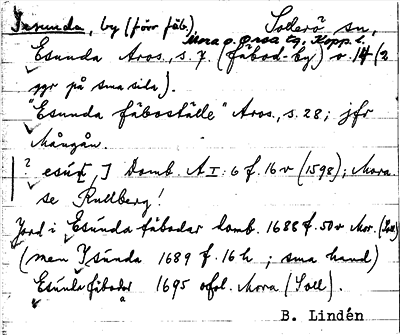 Isunda, by (förr fäb.) Sollerö sn,
Mora o. Orsa tg, Kopp. l.
Esunda Aros., s. 7. (fäbod-by) o 14 (2
ggr på sma sida).
"Esunda fäboställe" Aros., s. 28; jfr
Mångån.
? esúd[,] Domb. A I: 6 f. 16 v (1598); Mora.
se Rullberg!
Jord i Esúnda fäbodar domb. 1688 f. 50 v Mor. (Soll)
(men Isúnda 1689 f. 16 h ; sma hand)
Esúnle fäbodar 1695 ofol. Mora (Soll).
B. Lindén